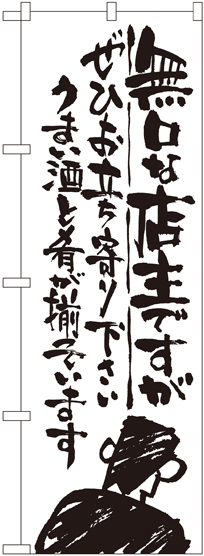 無口な店主ですが
ぜひお立ち寄り下さい
うまい酒と肴が揃ってます